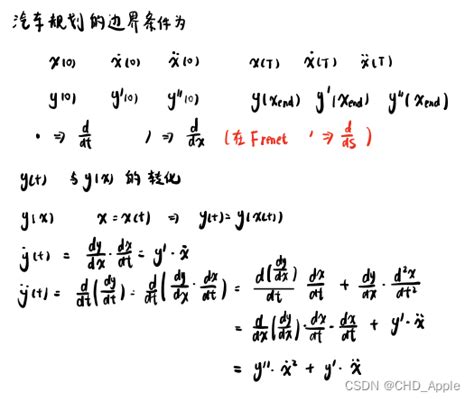 汽车规划的边界条件为
x(0) ẋ(0) ẍ(0) x(T) ẋ(T) ẍ(T)
y(0) y'(0) y''(0) y(xend) y'(xend) y''(xend)
· ⇒ d/dt ' ⇒ d/dx (在Frenet ' ⇒ d/ds)
y(t) 与y(x) 的转化
y(x) x = x(t) ⇒ y(t) = y(x(t))
ẏ(t) = dy/dx · dx/dt = y' · ẋ
ÿ(t) = d/dt(dy/dt) = d/dt(dy/dx · dx/dt) = d(dy/dx)/dt dx/dt + dy/dx · d²x/dt²
= d/dx(dy/dx) · dx/dt · dx/dt + y' · ẍ
= y'' · ẋ² + y' · ẍ
CSDN @CHD_Apple